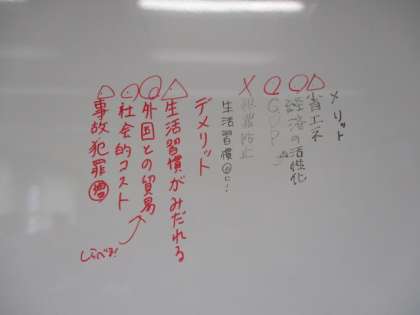 メリット
△省エネ
○経済の活性化
○GDP
×犯罪防止
生活習慣◎に!
デメリット
△生活習慣がみだれる
○外国との貿易
○社会的コスト
△事故・犯罪増
しらべる!